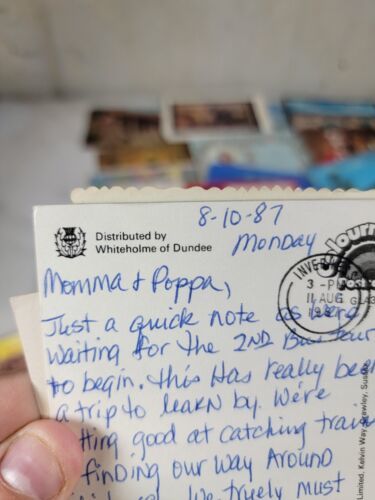 8-10-87
Distributed by
Whiteholme of Dundee
Monday
Momma & Poppa,
Just a quick note as were
waiting for the 2ND Bus tour
to begin. This Has really been
a trip to learn by. We're
tting good at catching trains
finding our way Around
We truely must
3-PM
11 AUG
Limited, Kelvin Way, Crawley, Sussex